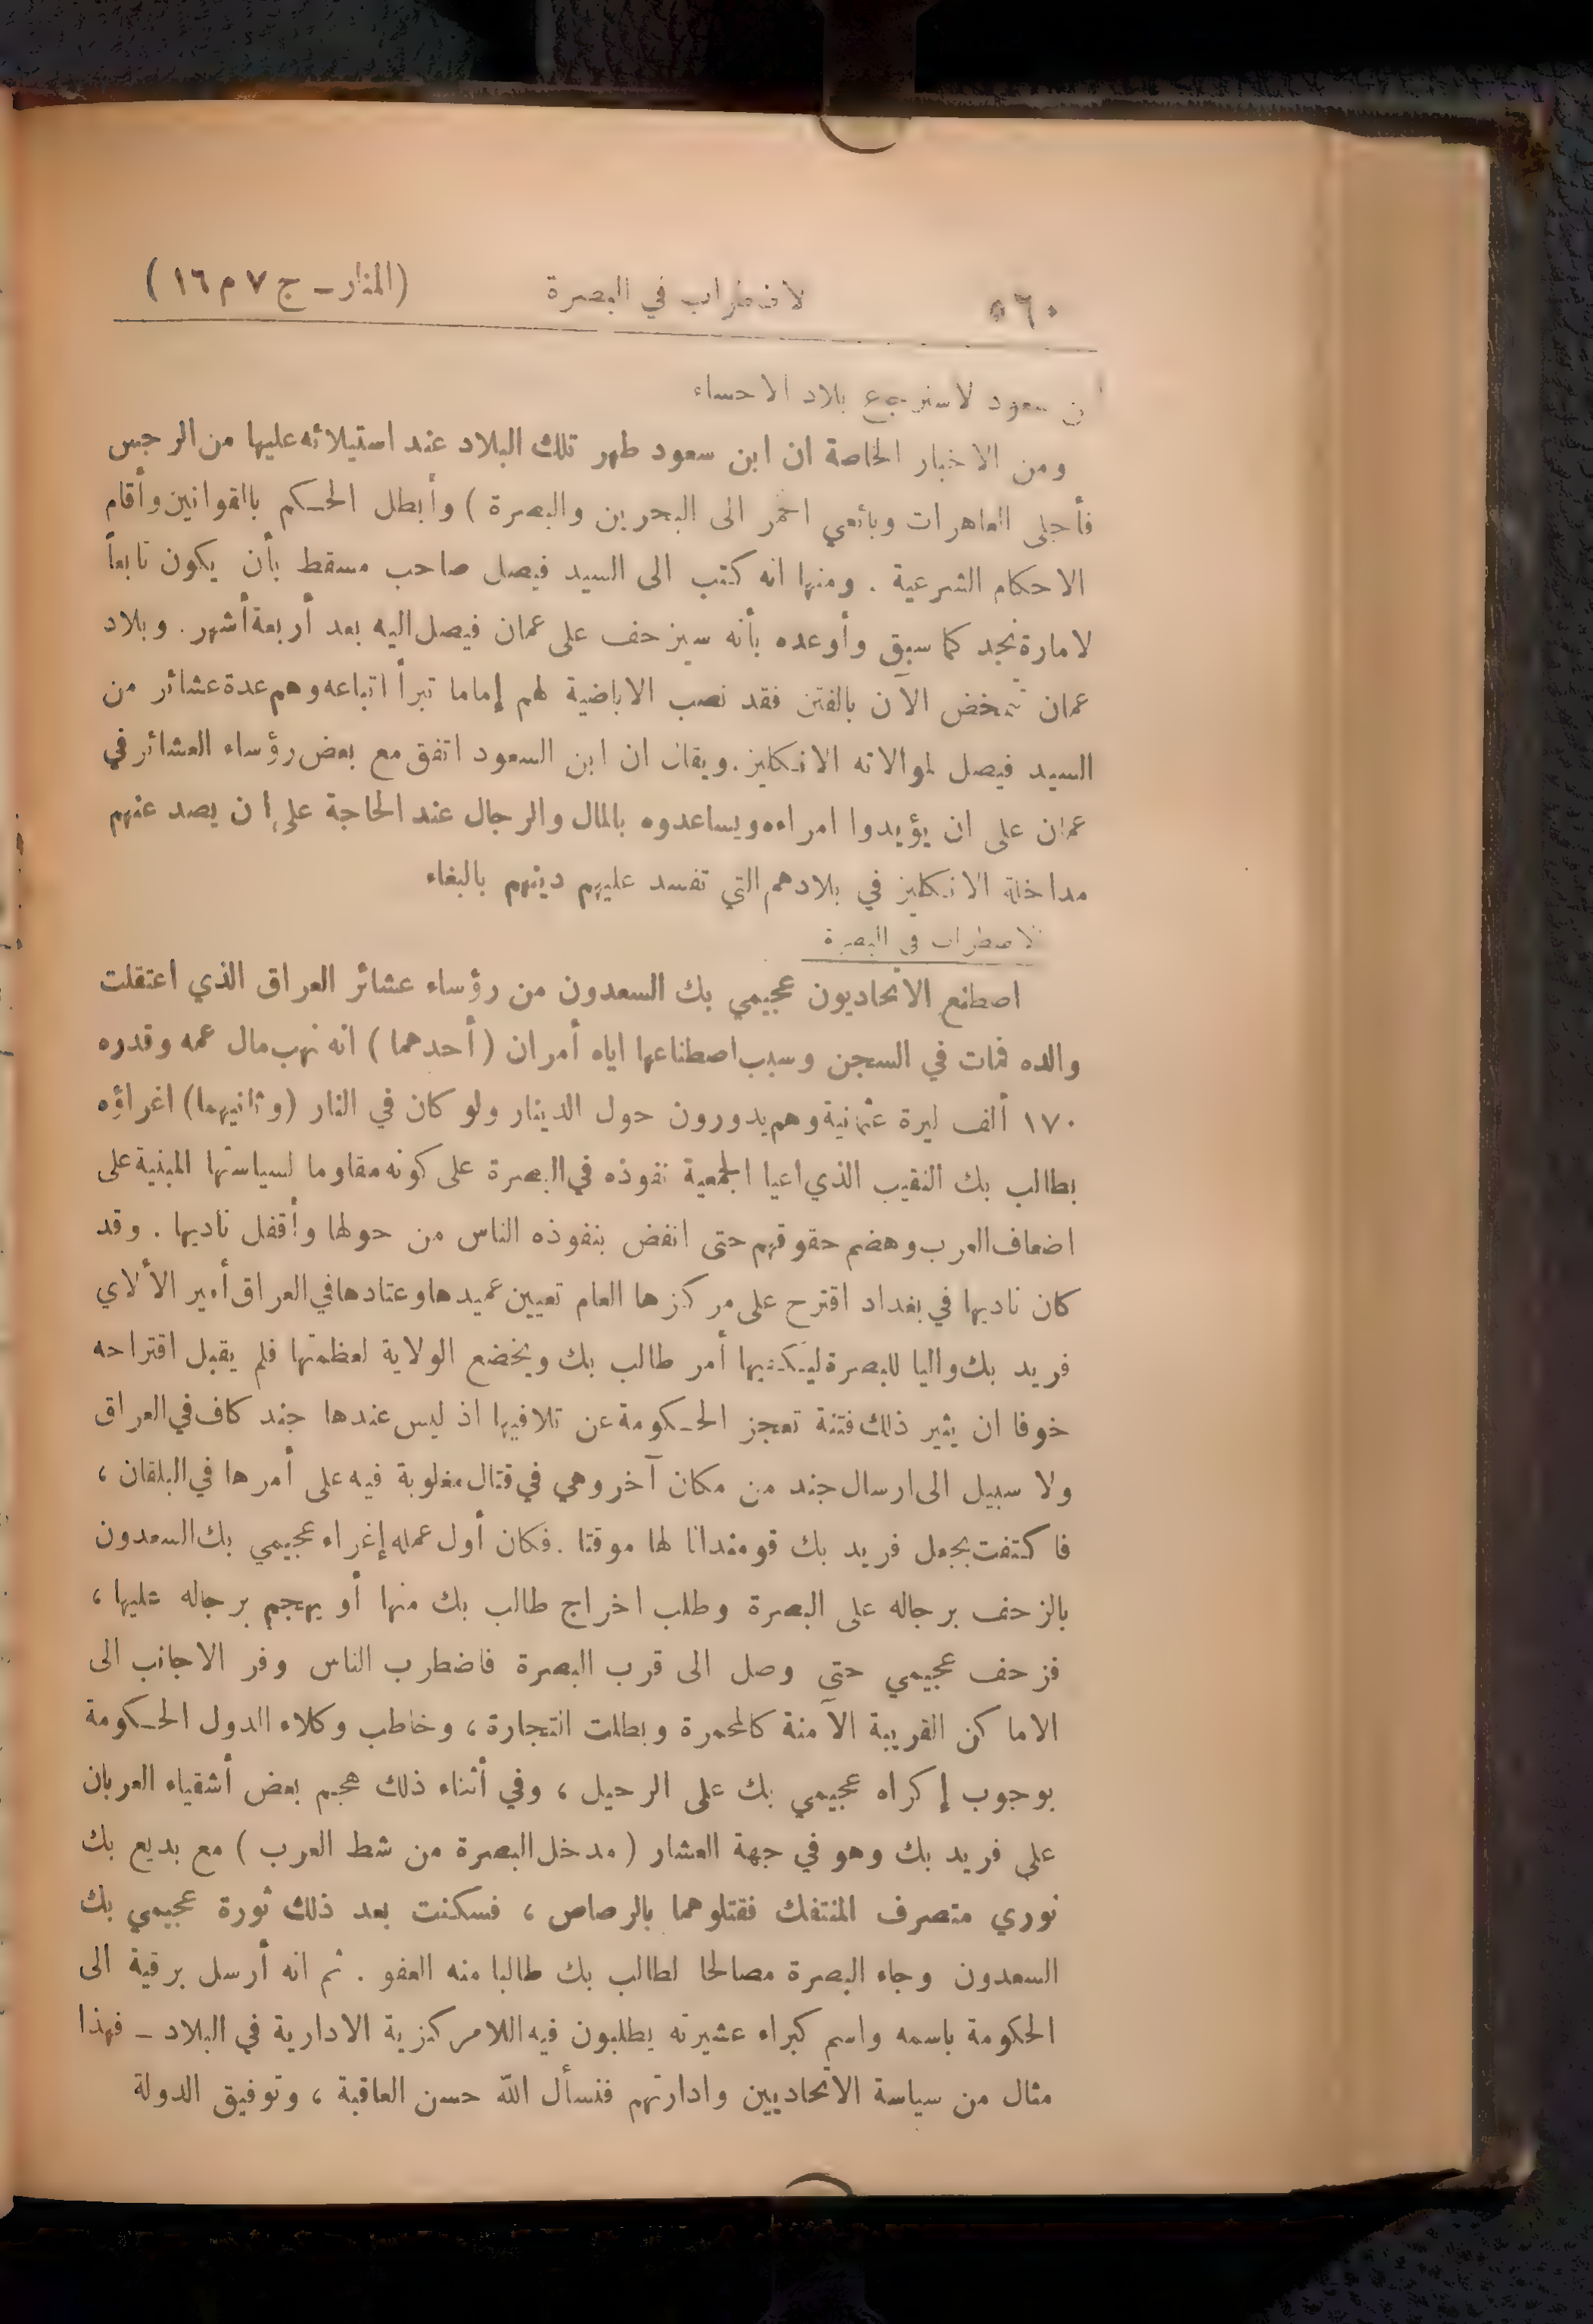 ٥٦٠ الاضطراب في البصرة (المنار ـ ج ٧ م ١٦)
ابن سعود لاسترجع بلاد الاحساء
ومن الاخبار الخاصة ان ابن سعود طهر تلك البلاد عند استيلائه عليها من الرجس
فأجلى العاهرات وبائعي الخمر الى البحرين والبصرة ) وأبطل الحكم بالقوانين وأقام
الاحكام الشرعية . ومنها انه كتب الى السيد فيصل صاحب مسقط بأن يكون تابعاً
لامارة نجد كما سبق وأوعده بأنه سيزحف على عمان فيصل اليه بعد أربعة أشهر . وبلاد
عمان تمخض الآن بالفتن فقد نصب الاباضية لهم إماما تبرأ اتباعه وهم عدة عشائر من
السيد فيصل لموالاته الانكليز . ويقال ان ابن السعود اتفق مع بعض رؤساء العشائر في
عمان على ان يؤيدوا امراءه ويساعدوه بالمال والرجال عند الحاجة على ان يصد عنهم
مداخلة الانكليز في بلادهم التي تفسد عليهم دينهم بالبغاء
الاضطراب في البصرة
اصطنع الاتحاديون عجيمي بك السعدون من رؤساء عشائر العراق الذي اعتقلت
والده فمات في السجن وسبب اصطناعها اياه أمران ( أحدهما ) انه نهب مال عمه وقدره
١٧٠ ألف ليرة عثمانية وهم يدورون حول الدينار ولو كان في النار (وثانيهما) اغراؤه
بطالب بك النقيب الذي اعيا الجمعية نفوذه في البصرة على كونه مقاوما لسياستها المبنية على
اضعاف العرب وهضم حقوقهم حتى انفض بنفوذه الناس من حولها وأقفل ناديها . وقد
كان ناديها في بغداد اقترح على مركزها العام تعيين عميدها وعتادها في العراق أمير الألاي
فريد بك واليا للبصرة ليكفيها أمر طالب بك ويخضع الولاية لعظمتها فلم يقبل اقتراحه
خوفا ان يثير ذلك فتنة تعجز الحكومة عن تلافيها اذ ليس عندها جند كاف في العراق
ولا سبيل الى ارسال جند من مكان آخر وهي في قتال مغلوبة فيه على أمرها في البلقان ،
فاكتفت بجعل فريد بك قومندانا لها موقتا . فكان أول عمله إغراء عجيمي بك السعدون
بالزحف برجاله على البصرة وطلب اخراج طالب بك منها أو يهجم برجاله عليها ،
فزحف عجيمي حتى وصل الى قرب البصرة فاضطرب الناس وفر الاجانب الى
الاماكن القريبة الآمنة كالمحمرة وبطلت التجارة ، وخاطب وكلاء الدول الحكومة
بوجوب إكراه عجيمي بك على الرحيل ، وفي أثناء ذلك هجم بعض أشقياء العربان
على فريد بك وهو في جهة العشار ( مدخل البصرة من شط العرب ) مع بديع بك
نوري متصرف المنتفك فقتلوهما بالرصاص ، فسكنت بعد ذلك ثورة عجيمي بك
السعدون وجاء البصرة مصالحا لطالب بك طالبا منه العفو . ثم انه أرسل برقية الى
الحكومة باسمه واسم كبراء عشيرته يطلبون فيه اللامركزية الادارية في البلاد ـ فهذا
مثال من سياسة الاتحاديين وادارتهم فنسأل الله حسن العاقبة ، وتوفيق الدولة